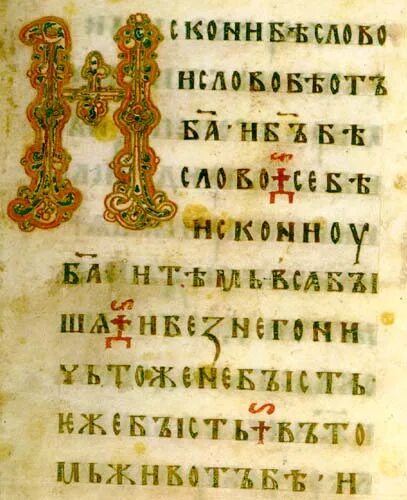 ИСКОНИБѢСЛОВО
ИСЛОВОБѢОТЪ
Б҃А·ИБ҃ЪБѢ
СЛОВО СЕБѢ
ИСКОНИОУ
Б҃А·ИТѢМЬВСАБЪІ
ШѦ ИБЕЗНЕГОНИ
ЧЬТОЖЕНЕБЪІСТЬ
ѤЖЕБЪІСТЬ ВЪТО
МЬЖИВОТЪБѢ·И